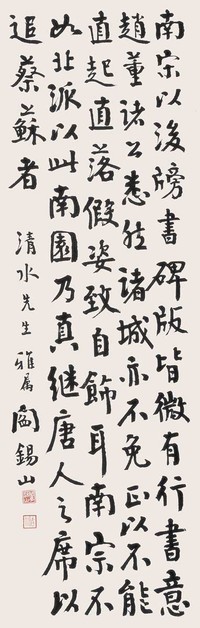 南宗以後牓書碑版皆微有行書意
趙董諸公悉然諸城亦不免正以不能
直起直落假姿致自飾耳南宗不
如北派以此南園乃真继唐人之席以
追蔡蘇者
清水先生雅属閻錫山